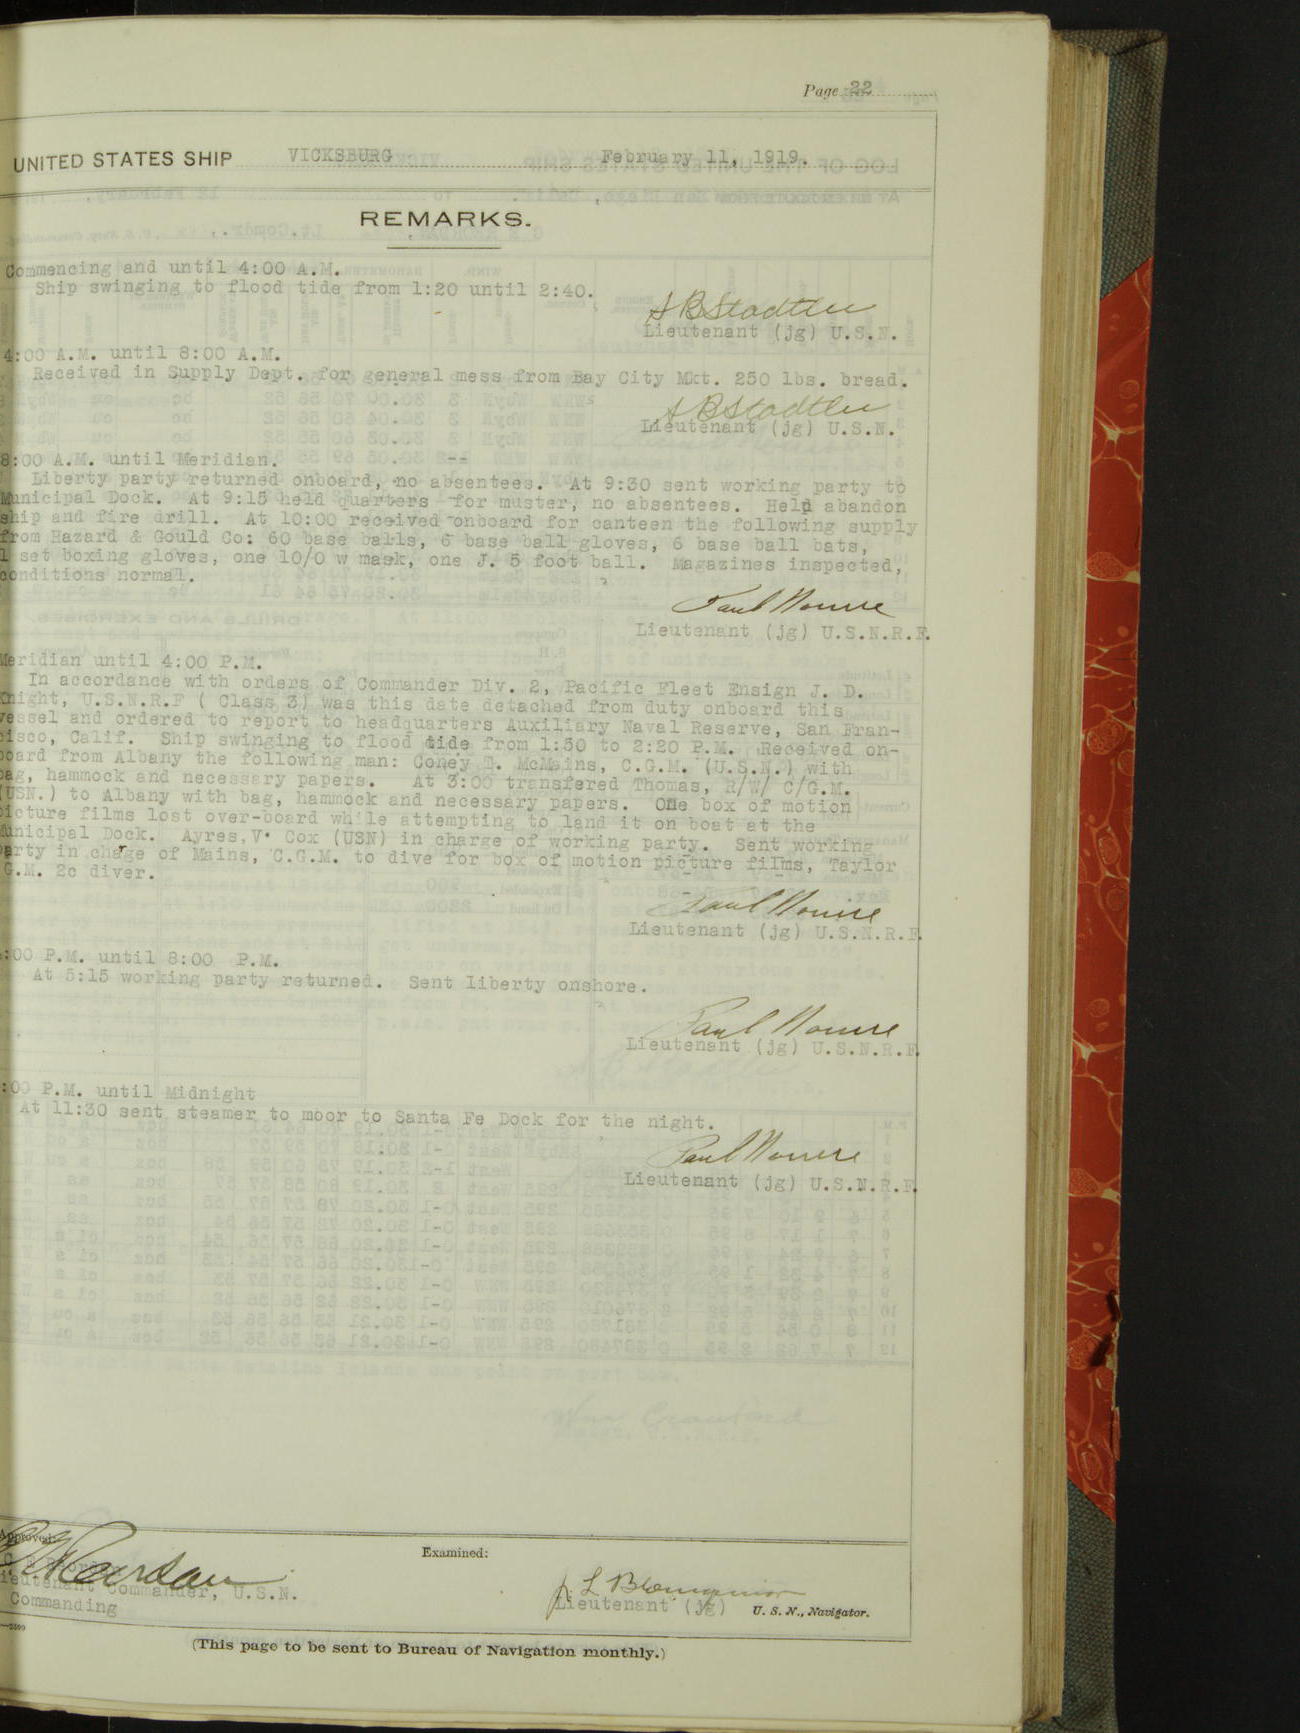 Page 22
UNITED STATES SHIP VICKSBURG February 11, 1919.
REMARKS.
Commencing and until 4:00 A.M.
Ship swinging to flood tide from 1:20 until 2:40.
S B Stadtler
Lieutenant (jg) U.S.N.
4:00 A.M. until 8:00 A.M.
Received in Supply Dept. for general mess from Bay City Mkt. 250 lbs. bread.
S B Stadtler
Lieutenant (jg) U.S.N.
8:00 A.M. until Meridian.
Liberty party returned onboard, no absentees. At 9:30 sent working party to
Municipal Dock. At 9:15 held quarters for muster, no absentees. Held abandon
ship and fire drill. At 10:00 received onboard for canteen the following supply
from Hazard & Gould Co: 60 base balls, 6 base ball gloves, 6 base ball bats,
1 set boxing gloves, one 10/0 w mask, one J. 5 foot ball. Magazines inspected,
conditions normal.
Paul
Lieutenant (jg) U.S.N.R.F.
Meridian until 4:00 P.M.
In accordance with orders of Commander Div. 2, Pacific Fleet Ensign J. D.
Knight, U.S.N.R.F ( Class 3) was this date detached from duty onboard this
vessel and ordered to report to headquarters Auxiliary Naval Reserve, San Fran-
cisco, Calif. Ship swinging to flood tide from 1:50 to 2:20 P.M. Received on-
board from Albany the following man: Coney T. McMains, C.G.M. (U.S.N.) with
bag, hammock and necessary papers. At 3:00 transfered Thomas, R/W/ C/G.M.
(USN.) to Albany with bag, hammock and necessary papers. One box of motion
picture films lost over-board while attempting to land it on boat at the
Municipal Dock. Ayres, V. Cox (USN) in charge of working party. Sent working
party in charge of Mains, C.G.M. to dive for box of motion picture films, Taylor
G.M. 2c diver.
Paul
Lieutenant (jg) U.S.N.R.F.
:00 P.M. until 8:00 P.M.
At 5:15 working party returned. Sent liberty onshore.
Paul
Lieutenant (jg) U.S.N.R.F.
:00 P.M. until Midnight
At 11:30 sent steamer to moor to Santa Fe Dock for the night.
Paul
Lieutenant (jg) U.S.N.R.F.
Approved:
Examined:
Lieutenant Commander, U.S.N.
Commanding
J. L.
Lieutenant (jg) U. S. N., Navigator.
(This page to be sent to Bureau of Navigation monthly.)